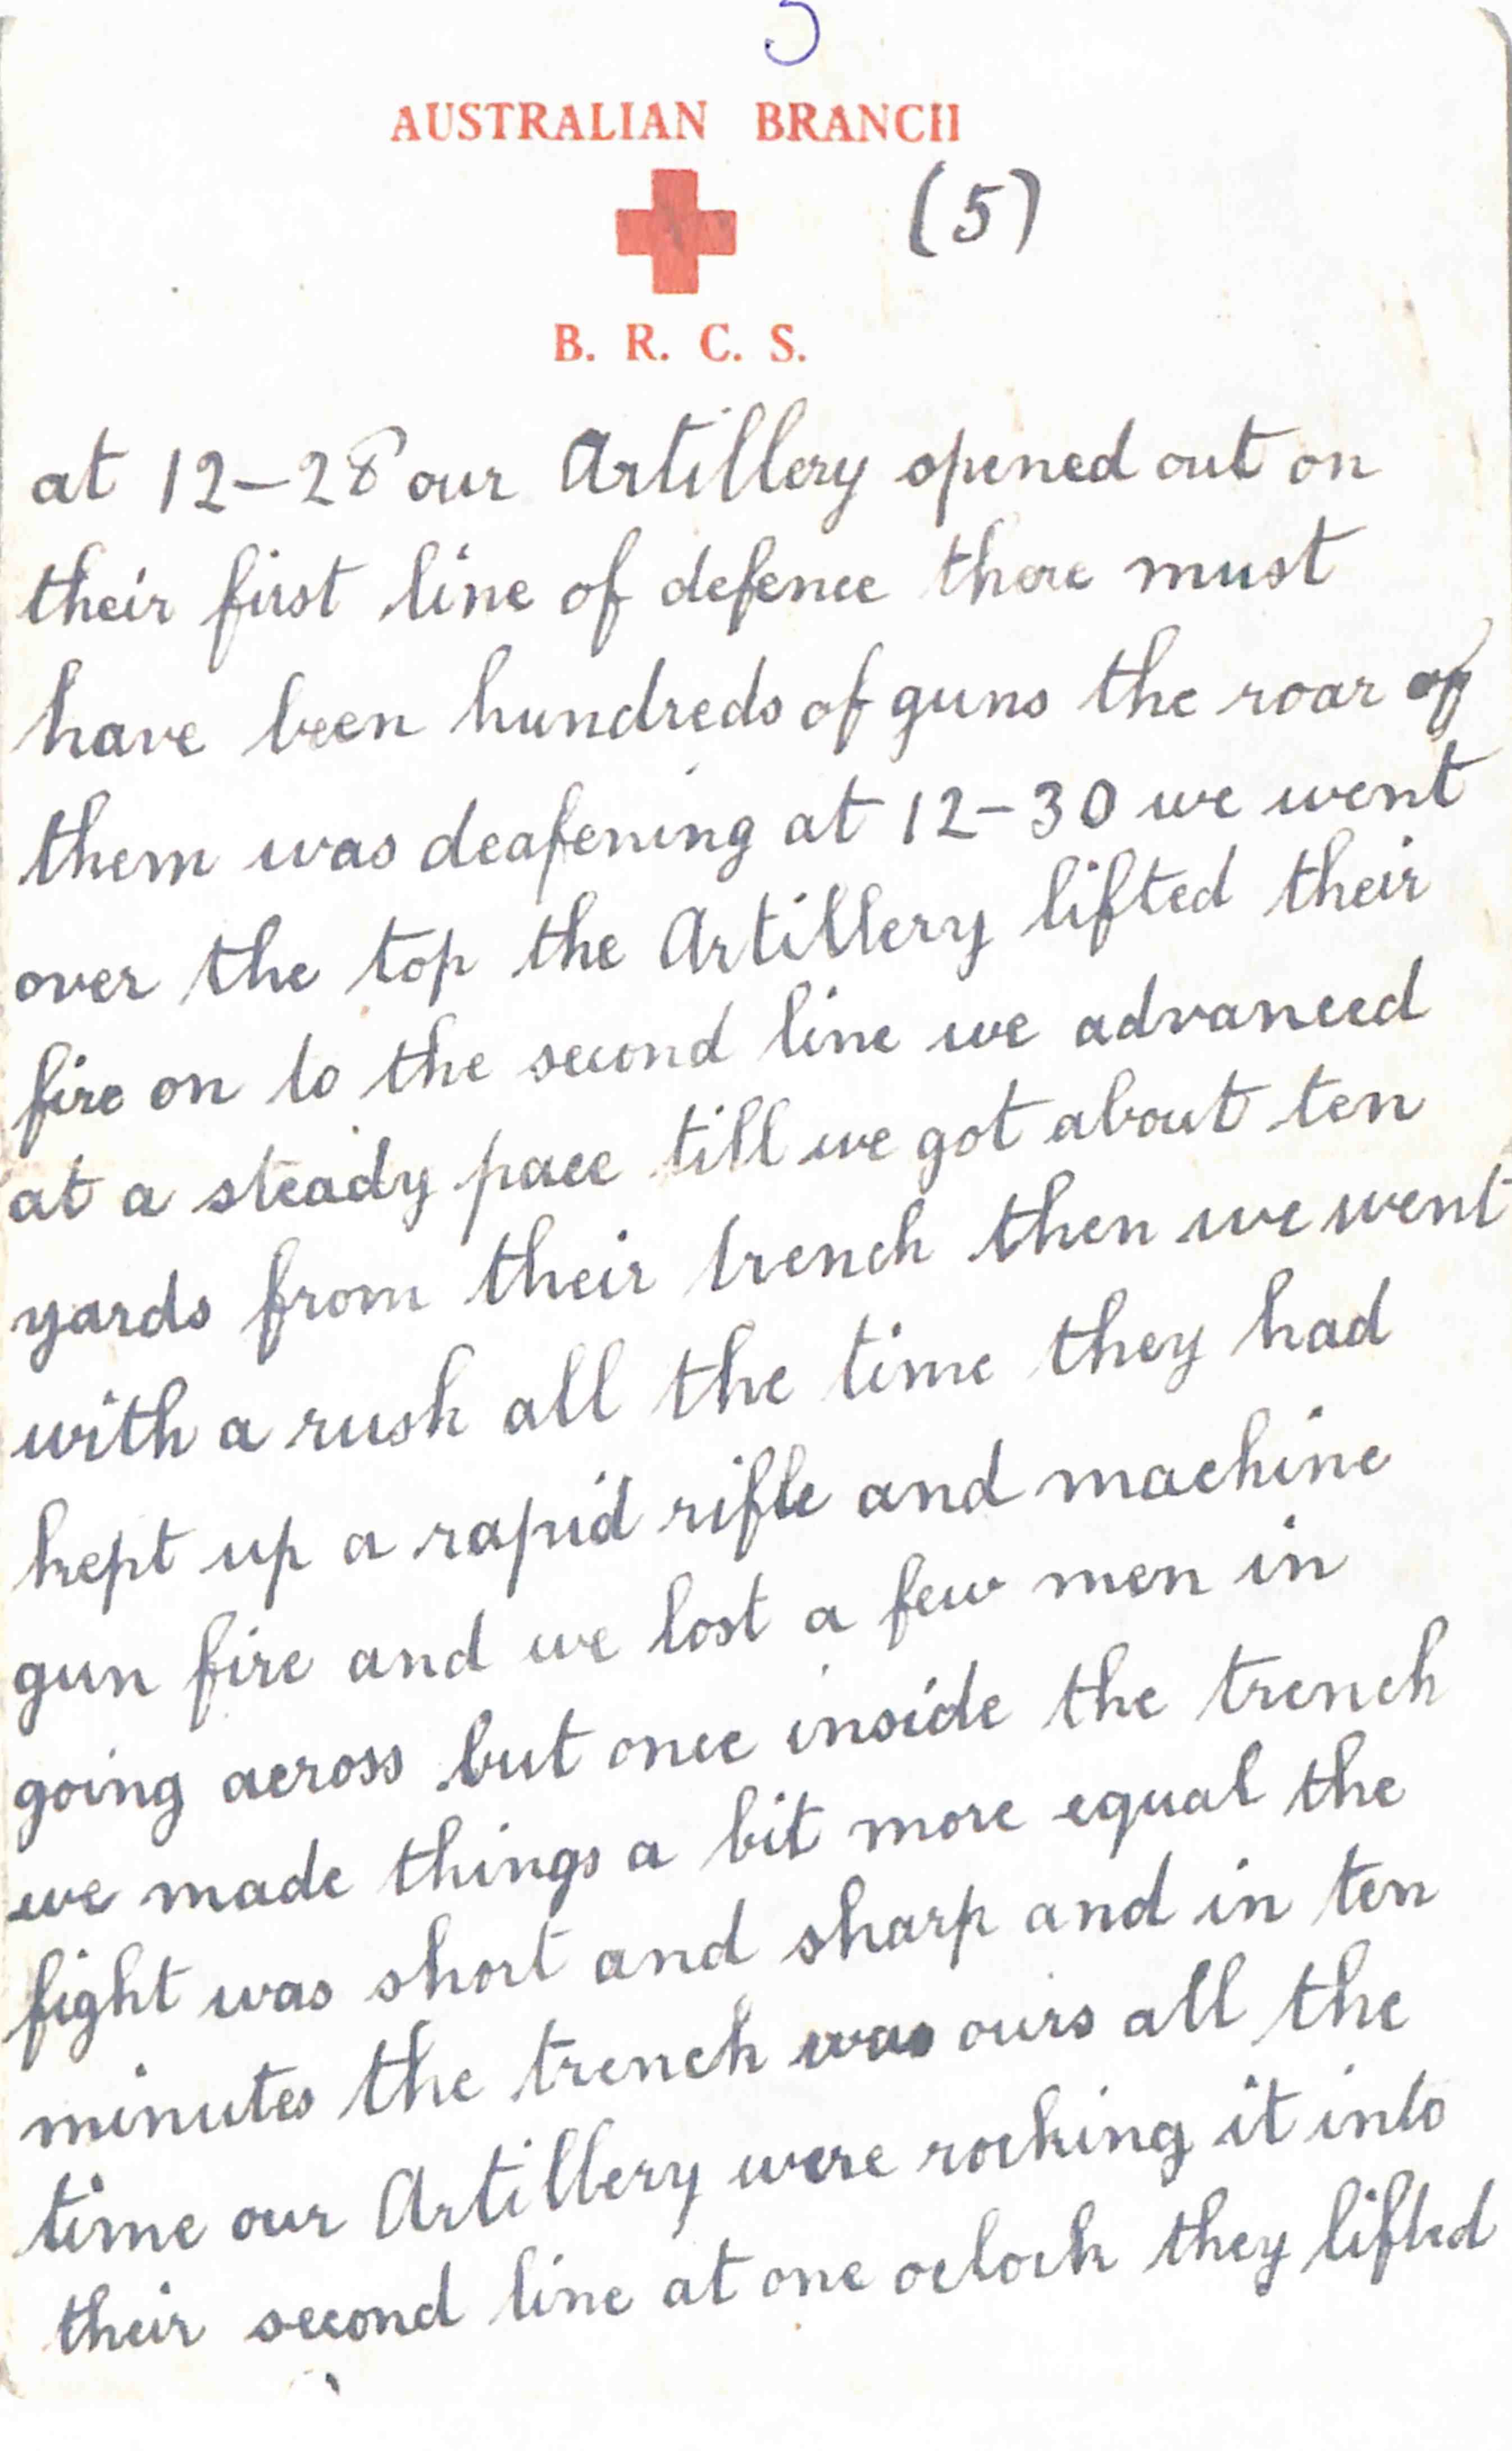 5
AUSTRALIAN BRANCH
(5)
B. R. C. S.
at 12-28 our Artillery opened out on
their first line of defence there must
have been hundreds of guns the roar of
them was deafening at 12-30 we went
over the top the Artillery lifted their
fire on to the second line we advanced
at a steady pace till we got about ten
yards from their trench then we went
with a rush all the time they had
kept up a rapid rifle and machine
gun fire and we lost a few men in
going across but once inside the trench
we made things a bit more equal the
fight was short and sharp and in ten
minutes the trench was ours all the
time our Artillery were rocking it into
their second line at one oclock they lifted